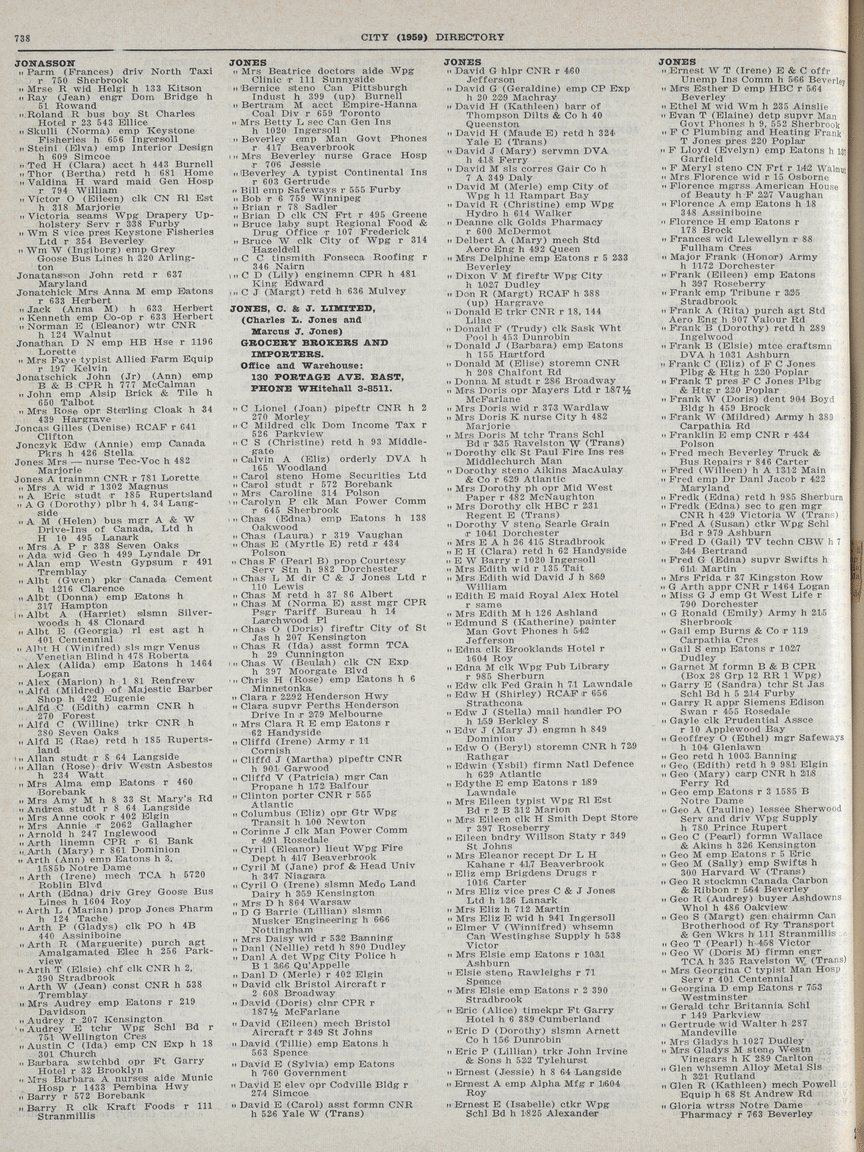 738
CITY (1959) DIRECTORY
JONASSON
" Parm (Frances) driv North Taxi
r 750 Sherbrook
" Mrse R wid Helgi h 133 Kitson
" Ray (Jean) engr Dom Bridge h
51 Rowand
" Roland R bus boy St Charles
Hotel r 23 543 Ellice
" Skulli (Norma) emp Keystone
Fisheries h 656 Ingersoll
" Steini (Elva) emp Interior Design
h 609 Simcoe
" Ted H (Clara) acct h 443 Burnell
" Thor (Bertha) retd h 681 Home
" Valdina H ward maid Gen Hosp
r 794 William
" Victor O (Eileen) clk CN Rl Est
h 318 Marjorie
" Victoria seams Wpg Drapery Up-
holstery Serv r 338 Furby
" Wm S vice pres Keystone Fisheries
Ltd r 354 Beverley
" Wm W (Ingiborg) emp Grey
Goose Bus Lines h 320 Arling-
ton
Jonatansson John retd r 637
Maryland
Jonatchick Mrs Anna M emp Eatons
r 633 Herbert
" Jack (Anna M) h 633 Herbert
" Kenneth emp Co-op r 633 Herbert
" Norman E (Eleanor) wtr CNR
h 124 Walnut
Jonathan D N emp HB Hse r 1196
Lorette
" Mrs Faye typist Allied Farm Equip
r 197 Kelvin
Jonatschick John (Jr) (Ann) emp
B & B CPR h 777 McCalman
" John emp Alsip Brick & Tile h
650 Talbot
" Mrs Rose opr Sterling Cloak h 34
439 Hargrave
Joncas Gilles (Denise) RCAF r 641
Clifton
Jonczyk Edw (Annie) emp Canada
Pkrs h 426 Stella
Jones Mrs — nurse Tec-Voc h 482
Marjorie
Jones A trainmn CNR r 781 Lorette
" Mrs A wid r 1302 Magnus
" A Eric studt r 185 Rupertsland
" A G (Dorothy) plbr h 4, 34 Lang-
side
" A M (Helen) bus mgr A & W
Drive-Ins of Canada, Ltd h
H 10 495 Lanark
" Mrs A P r 338 Seven Oaks
" Ada wid Geo h 499 Lyndale Dr
" Alan emp Westn Gypsum r 491
Tremblay
" Albt (Gwen) pkr Canada Cement
h 1216 Clarence
" Albt (Donna) emp Eatons h
317 Hampton
" Albt A (Harriet) slsmn Silver-
woods h 48 Clonard
" Albt E (Georgia) rl est agt h
401 Centennial
" Albt H (Winifred) sls mgr Venus
Venetian Blind h 478 Roberta
" Alex (Alida) emp Eatons h 1464
Logan
" Alex (Marion) h 1 81 Renfrew
" Alfd (Mildred) of Majestic Barber
Shop h 422 Eugenie
" Alfd C (Edith) carmn CNR h
270 Forest
" Alfd C (Willine) trkr CNR h
380 Seven Oaks
" Alfd E (Rae) retd h 185 Ruperts-
land
" Allan studt r 8 64 Langside
" Allan (Rose) driv Westn Asbestos
h 234 Watt
" Mrs Alma emp Eatons r 460
Borebank
" Mrs Amy M h 8 33 St Mary's Rd
" Andrea studt r 8 64 Langside
" Mrs Anne cook r 402 Elgin
" Mrs Annie r 2062 Gallagher
" Arnold h 247 Inglewood
" Arth linemn CPR r 61 Bank
" Arth (Mary) r 861 Dominion
" Arth (Ann) emp Eatons h 3,
1585b Notre Dame
" Arth (Irene) mech TCA h 5720
Roblin Blvd
" Arth (Edna) driv Grey Goose Bus
Lines h 1604 Roy
" Arth L (Marian) prop Jones Pharm
h 124 Tache
" Arth P (Gladys) clk PO h 4B
440 Assiniboine
" Arth R (Marguerite) purch agt
Amalgamated Elec h 256 Park-
view
" Arth T (Elsie) chf clk CNR h 2,
390 Stradbrook
" Arth W (Jean) const CNR h 538
Tremblay
" Mrs Audrey emp Eatons r 219
Davidson
" Audrey r 207 Kensington
" Audrey E tchr Wpg Schl Bd r
751 Wellington Cres
" Austin C (Ida) emp CN Exp h 18
301 Church
" Barbara swtchbd opr Ft Garry
Hotel r 32 Brooklyn
" Mrs Barbara A nurses aide Munic
Hosp r 1433 Pembina Hwy
" Barry r 572 Borebank
" Barry R clk Kraft Foods r 111
Stranmillis
JONES
" Mrs Beatrice doctors aide Wpg
Clinic r 111 Sunnyside
" Bernice steno Can Pittsburgh
Indust h 399 (up) Burnell
" Bertram M acct Empire-Hanna
Coal Div r 659 Toronto
" Mrs Betty L sec Can Gen Ins
h 1020 Ingersoll
" Beverley emp Man Govt Phones
r 417 Beaverbrook
" Mrs Beverley nurse Grace Hosp
r 706 Jessie
" Beverley A typist Continental Ins
r 603 Gertrude
" Bill emp Safeways r 555 Furby
" Bob r 6 759 Winnipeg
" Brian r 78 Sadler
" Brian D clk CN Frt r 495 Greene
" Bruce laby supt Regional Food &
Drug Office r 107 Frederick
" Bruce W clk City of Wpg r 314
Hazeldell
" C C tinsmith Fonseca Roofing r
346 Nairn
" C D (Lily) enginemn CPR h 481
King Edward
" C J (Margt) retd h 636 Mulvey
JONES, C. & J. LIMITED,
(Charles L. Jones and
Marcus J. Jones)
GROCERY BROKERS AND
IMPORTERS.
Office and Warehouse:
130 PORTAGE AVE. EAST,
PHONE WHitehall 3-8511.
" C Lionel (Joan) pipeftr CNR h 2
270 Morley
" C Mildred clk Dom Income Tax r
526 Parkview
" C S (Christine) retd h 93 Middle-
gate
" Calvin A (Eliz) orderly DVA h
165 Woodland
" Carol steno Home Securities Ltd
" Carol studt r 572 Borebank
" Mrs Caroline 314 Polson
" Carolyn P clk Man Power Comm
r 645 Sherbrook
" Chas (Edna) emp Eatons h 138
Oakwood
" Chas (Laura) r 319 Vaughan
" Chas E (Myrtle E) retd r 434
Polson
" Chas F (Pearl B) prop Courtesy
Serv Stn h 982 Dorchester
" Chas L M dir C & J Jones Ltd r
110 Lewis
" Chas M retd h 37 86 Albert
" Chas M (Norma E) asst mgr CPR
Psgr Tariff Bureau h 14
Larchwood Pl
" Chas O (Doris) fireftr City of St
Jas h 207 Kensington
" Chas R (Ida) asst formn TCA
h 29 Cunnington
" Chas W (Beulah) clk CN Exp
h 397 Moorgate Blvd
" Chris H (Rose) emp Eatons h 6
Minnetonka
" Clara r 2292 Henderson Hwy
" Clara supvr Perths Henderson
Drive In r 279 Melbourne
" Mrs Clara R E emp Eatons r
62 Handyside
" Cliffd (Irene) Army r 11
Cornish
" Cliffd J (Martha) pipeftr CNR
h 901 Garwood
" Cliffd V (Patricia) mgr Can
Propane h 172 Balfour
" Clinton porter CNR r 555
Atlantic
" Columbus (Eliz) opr Gtr Wpg
Transit h 100 Newton
" Corinne J clk Man Power Comm
r 491 Rosedale
" Cyril (Eleanor) lieut Wpg Fire
Dept h 417 Beaverbrook
" Cyril M (Jane) prof & Head Univ
h 347 Niagara
" Cyril O (Irene) slsmn Medo Land
Dairy h 359 Kensington
" Mrs D h 864 Warsaw
" D G Barrie (Lillian) slsmn
Musker Engineering h 666
Nottingham
" Mrs Daisy wid r 532 Banning
" Danl (Nellie) retd h 890 Dudley
" Danl A det Wpg City Police h
B 1 366 Qu'Appelle
" Danl D (Merle) r 402 Elgin
" David clk Bristol Aircraft r
2 608 Broadway
" David (Doris) clnr CPR r
187½ McFarlane
" David (Eileen) mech Bristol
Aircraft r 349 St Johns
" David (Tillie) emp Eatons h
563 Spence
" David E (Sylvia) emp Eatons
h 760 Government
" David E elev opr Codville Bldg r
274 Simcoe
" David E (Carol) asst formn CNR
h 526 Yale W (Trans)
JONES
" David G hlpr CNR r 460
Jefferson
" David G (Geraldine) emp CP Exp
h 20 229 Machray
" David H (Kathleen) barr of
Thompson Dilts & Co h 40
Queenston
" David H (Maude E) retd h 324
Yale E (Trans)
" David J (Mary) servmn DVA
h 418 Ferry
" David M sls corres Gair Co h
7 A 349 Daly
" David M (Merle) emp City of
Wpg h 11 Rampart Bay
" David R (Christine) emp Wpg
Hydro h 614 Walker
" Deanne clk Golds Pharmacy
r 600 McDermot
" Delbert A (Mary) mech Std
Aero Eng h 492 Queen
" Mrs Delphine emp Eatons r 5 233
Beverley
" Dixon V M fireftr Wpg City
h 1027 Dudley
" Don R (Margt) RCAF h 388
(up) Hargrave
" Donald E trkr CNR r 18, 144
Lilac
" Donald F (Trudy) clk Sask Wht
Pool h 453 Dunrobin
" Donald J (Barbara) emp Eatons
h 155 Hartford
" Donald M (Elise) storemn CNR
h 203 Chalfont Rd
" Donna M studt r 286 Broadway
" Mrs Doris opr Mayers Ltd r 187½
McFarlane
" Mrs Doris wid r 373 Wardlaw
" Mrs Doris K nurse City h 482
Marjorie
" Mrs Doris M tchr Trans Schl
Bd r 335 Ravelston W (Trans)
" Dorothy clk St Paul Fire Ins res
Middlechurch Man
" Dorothy steno Aikins MacAulay
& Co r 629 Atlantic
" Mrs Dorothy ph opr Mid West
Paper r 482 McNaughton
" Mrs Dorothy clk HBC r 231
Regent E (Trans)
" Dorothy V steno Searle Grain
r 1041 Dorchester
" Mrs E A h 26 415 Stradbrook
" E H (Clara) retd h 62 Handyside
" E W Barry r 1020 Ingersoll
" Mrs Edith wid r 135 Tait
" Mrs Edith wid David J h 869
William
" Edith E maid Royal Alex Hotel
r same
" Mrs Edith M h 126 Ashland
" Edmund S (Katherine) painter
Man Govt Phones h 542
Jefferson
" Edna clk Brooklands Hotel r
1604 Roy
" Edna M clk Wpg Pub Library
r 985 Sherburn
" Edw clk Fed Grain h 71 Lawndale
" Edw H (Shirley) RCAF r 656
Strathcona
" Edw J (Stella) mail handler PO
h 159 Berkley S
" Edw J (Mary J) engmn h 849
Dominion
" Edw O (Beryl) storemn CNR h 729
Rathgar
" Edwin (Ysbil) firmn Natl Defence
h 629 Atlantic
" Edythe E emp Eatons r 189
Lawndale
" Mrs Eileen typist Wpg Rl Est
Bd r 2 B 312 Marion
" Mrs Eileen clk H Smith Dept Store
r 397 Roseberry
" Eileen bndry Willson Staty r 349
St Johns
" Mrs Eleanor recept Dr L H
Kahane r 417 Beaverbrook
" Eliz emp Brigdens Drugs r
1016 Carter
" Mrs Eliz vice pres C & J Jones
Ltd h 126 Lanark
" Mrs Eliz h 712 Martin
" Mrs Eliz E wid h 941 Ingersoll
" Elmer V (Winnifred) whsemn
Can Westinghse Supply h 538
Victor
" Mrs Elsie emp Eatons r 1031
Ashburn
" Elsie steno Rawleighs r 71
Spence
" Mrs Elsie emp Eatons r 2 390
Stradbrook
" Eric (Alice) timekpr Ft Garry
Hotel h 6 389 Cumberland
" Eric D (Dorothy) slsmn Arnett
Co h 156 Dunrobin
" Eric P (Lillian) trkr John Irvine
& Sons h 522 Tylehurst
" Ernest (Jessie) h 8 64 Langside
" Ernest A emp Alpha Mfg r 1604
Roy
" Ernest E (Isabelle) ctkr Wpg
Schl Bd h 1825 Alexander
JONES
" Ernest W T (Irene) E & C offr
Unemp Ins Comm h 566 Beverley
" Mrs Esther D emp HBC r 564
Beverley
" Ethel M wid Wm h 235 Ainslie
" Evan T (Elaine) detp supvr Man
Govt Phones h 9, 552 Sherbrook
" F C Plumbing and Heating Frank
T Jones pres 220 Poplar
" F Lloyd (Evelyn) emp Eatons h
Garfield
" F Meryl steno CN Frt r 142 Walnut
" Mrs Florence wid r 15 Osborne
" Florence mgrss American House
of Beauty h F 227 Vaughan
" Florence A emp Eatons h 18
348 Assiniboine
" Florence H emp Eatons r
178 Brock
" Frances wid Llewellyn r 88
Fullham Cres
" Major Frank (Honor) Army
h 1172 Dorchester
" Frank (Eileen) emp Eatons
h 397 Roseberry
" Frank emp Tribune r 325
Stradbrook
" Frank A (Rita) purch agt Std
Aero Eng h 907 Valour Rd
" Frank B (Dorothy) retd h 289
Ingelwood
" Frank B (Elsie) mtce craftsmn
DVA h 1031 Ashburn
" Frank C (Eliz) of F C Jones
Plbg & Htg h 220 Poplar
" Frank T pres F C Jones Plbg
& Htg r 220 Poplar
" Frank W (Doris) dent 904 Boyd
Bldg h 459 Brock
" Frank W (Mildred) Army h 389
Carpathia Rd
" Franklin E emp CNR r 434
Polson
" Fred mech Beverley Truck &
Bus Repairs r 846 Carter
" Fred (Willeen) h A 1312 Main
" Fred emp Dr Danl Jacob r 422
Maryland
" Fredk (Edna) retd h 985 Sherburn
" Fredk (Edna) sec to gen mgr
CNR h 429 Victoria W (Trans)
" Fred A (Susan) ctkr Wpg Schl
Bd r 979 Ashburn
" Fred D (Gail) TV techn CBW h 7
344 Bertrand
" Fred G (Edna) supvr Swifts h
610 Martin
" Mrs Frida r 37 Kingston Row
" G Arth appr CNR r 1464 Logan
" Miss G J emp Gt West Life r
790 Dorchester
" G Ronald (Emily) Army h 215
Sherbrook
" Gail emp Burns & Co r 119
Carpathia Cres
" Gail S emp Eatons r 1027
Dudley
" Garnet M formn B & B CPR
(Box 28 Grp 12 RR 1 Wpg)
" Garry E (Sandra) tchr St Jas
Schl Bd h 5 214 Furby
" Garry R appr Siemens Edison
Swan r 455 Rosedale
" Gayle clk Prudential Assce
r 10 Applewood Bay
" Geoffrey O (Ethel) mgr Safeways
h 104 Glenlawn
" Geo retd h 1003 Banning
" Geo (Edith) retd h 9 981 Elgin
" Geo (Mary) carp CNR h 218
Ferry Rd
" Geo emp Eatons r 3 1585 B
Notre Dame
" Geo A (Pauline) lessee Sherwood
Serv and driv Wpg Supply
h 780 Prince Rupert
" Geo C (Pearl) formn Wallace
& Akins h 326 Kensington
" Geo M emp Eatons r 5 Eric
" Geo M (Sally) emp Swifts h
300 Harvard W (Trans)
" Geo R stockmn Canada Carbon
& Ribbon r 564 Beverley
" Geo R (Audrey) buyer Ashdowns
Whol h 486 Oakview
" Geo S (Margt) gen chairmn Can
Brotherhood of Ry Transport
& Gen Wkrs h 111 Stranmillis
" Geo T (Pearl) h 458 Victor
" Geo W (Doris M) firmn engr
TCA h 335 Ravelston W (Trans)
" Mrs Georgina C typist Man Hosp
Serv r 401 Centennial
" Georgina D emp Eatons r 753
Westminster
" Gerald tchr Britannia Schl
r 149 Parkview
" Gertrude wid Walter h 287
Mandeville
" Mrs Gladys h 1027 Dudley
" Mrs Gladys M steno Westn
Vinegars h K 289 Carlton
" Glen whsemn Alloy Metal Sls
h 321 Rutland
" Glen R (Kathleen) mech Powell
Equip h 68 St Andrew Rd
" Gloria wtrss Notre Dame
Pharmacy r 763 Beverley